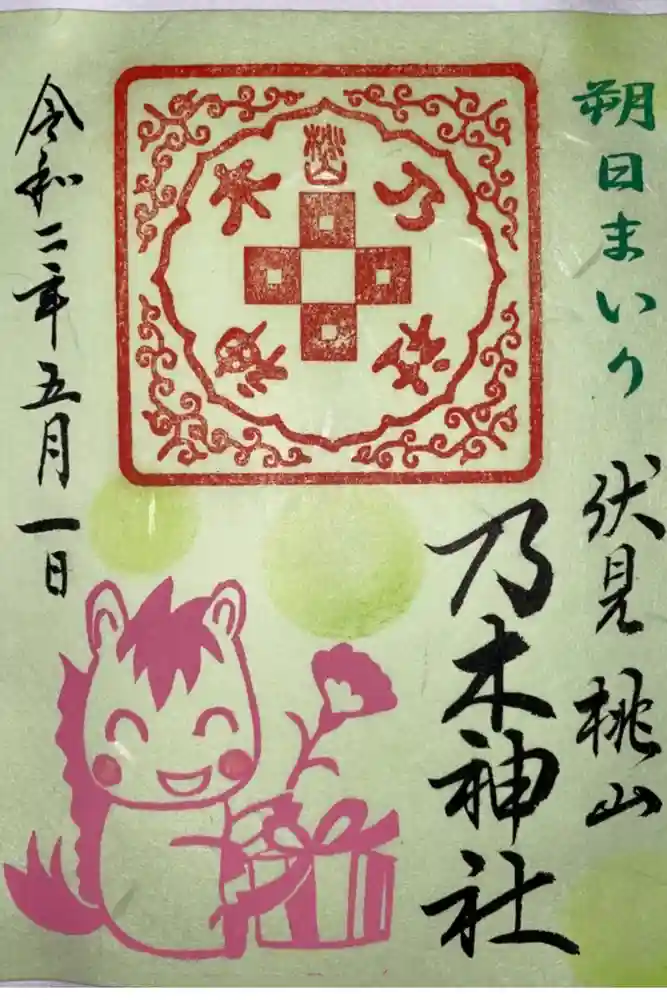 朔日まいり
伏見 桃山
乃木神社
桃山
乃木
令和二年五月一日